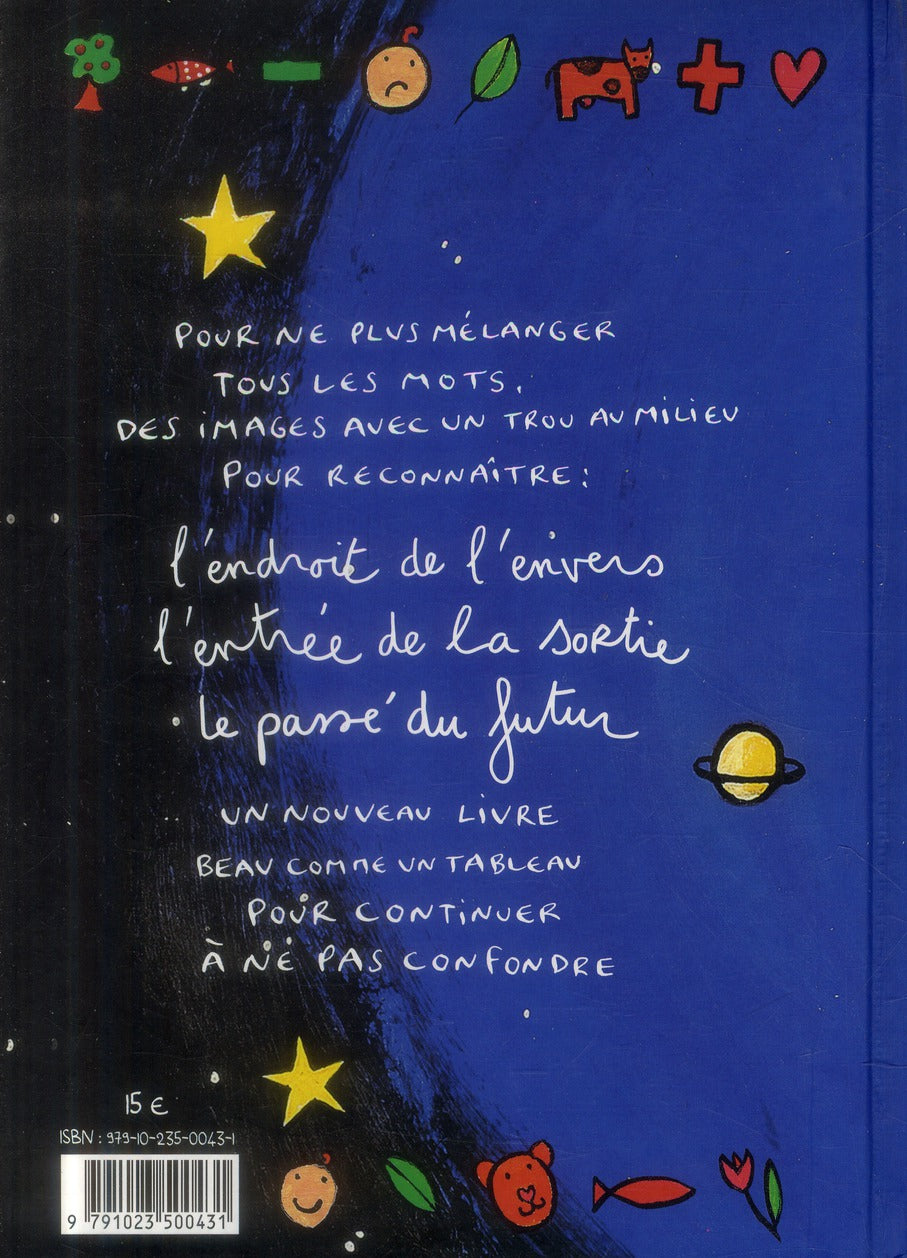 POUR NE PLUS MÉLANGER
TOUS LES MOTS,
DES IMAGES AVEC UN TROU AU MILIEU
POUR RECONNAÎTRE :
l'endroit de l'envers
l'entrée de la sortie
le passé du futur
UN NOUVEAU LIVRE
BEAU COMME UN TABLEAU
POUR CONTINUER
À NE PAS CONFONDRE
15 €
ISBN : 979-10-235-0043-1
9 791023 500431